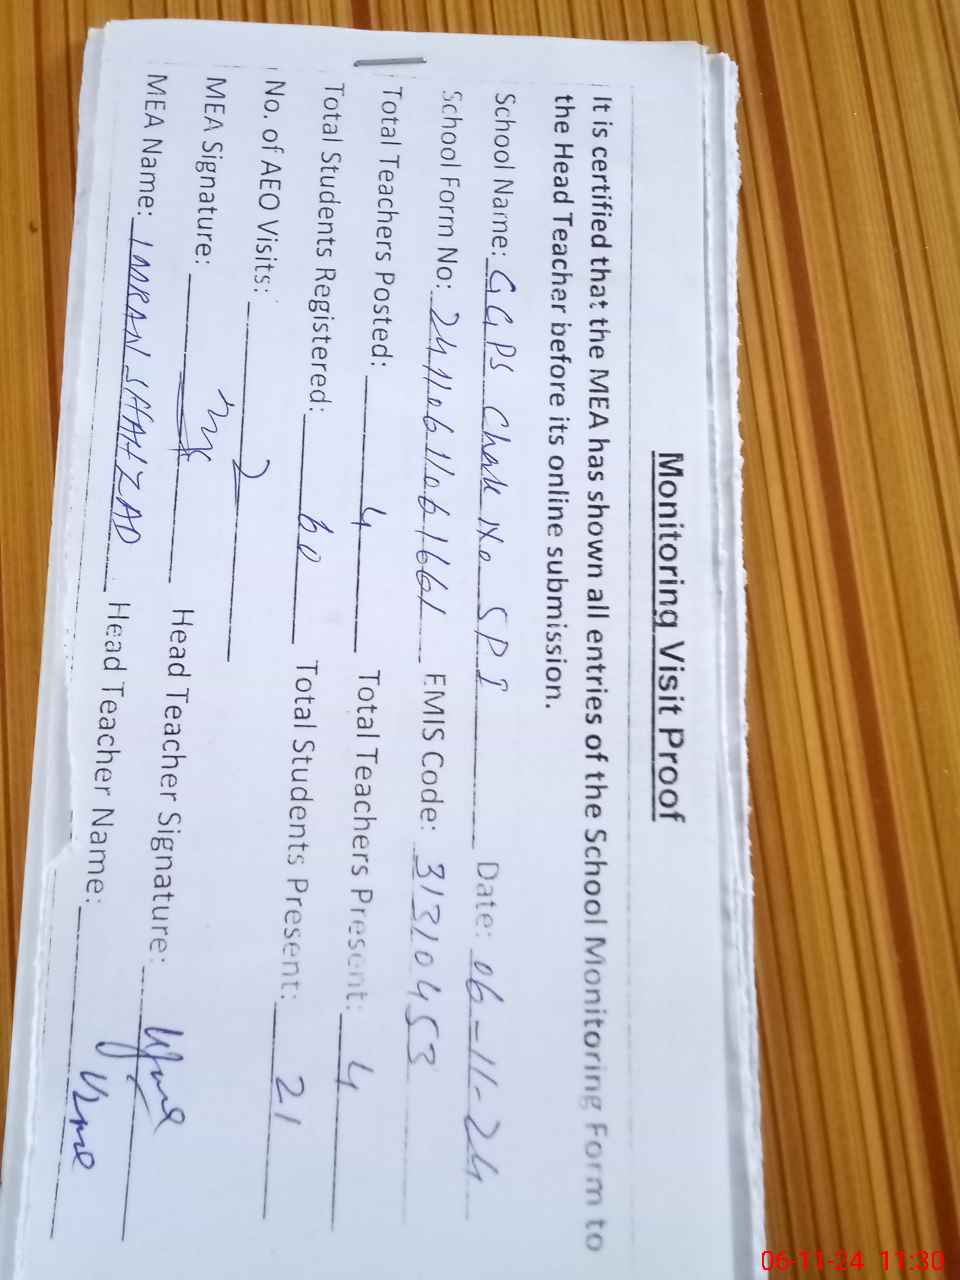 Monitoring Visit Proof
It is certified that the MEA has shown all entries of the School Monitoring Form to
the Head Teacher before its online submission.
School Name: GGPS Chak No SPI Date: 06-11-24
School Form No: EMIS Code: 31310453
Total Teachers Posted: 4 Total Teachers Present: 4
Total Students Registered: 60 Total Students Present: 21
No. of AEO Visits: 2
MEA Signature: Head Teacher Signature:
MEA Name: IMRAN SHAHZAD Head Teacher Name:
06-11-24 11:30